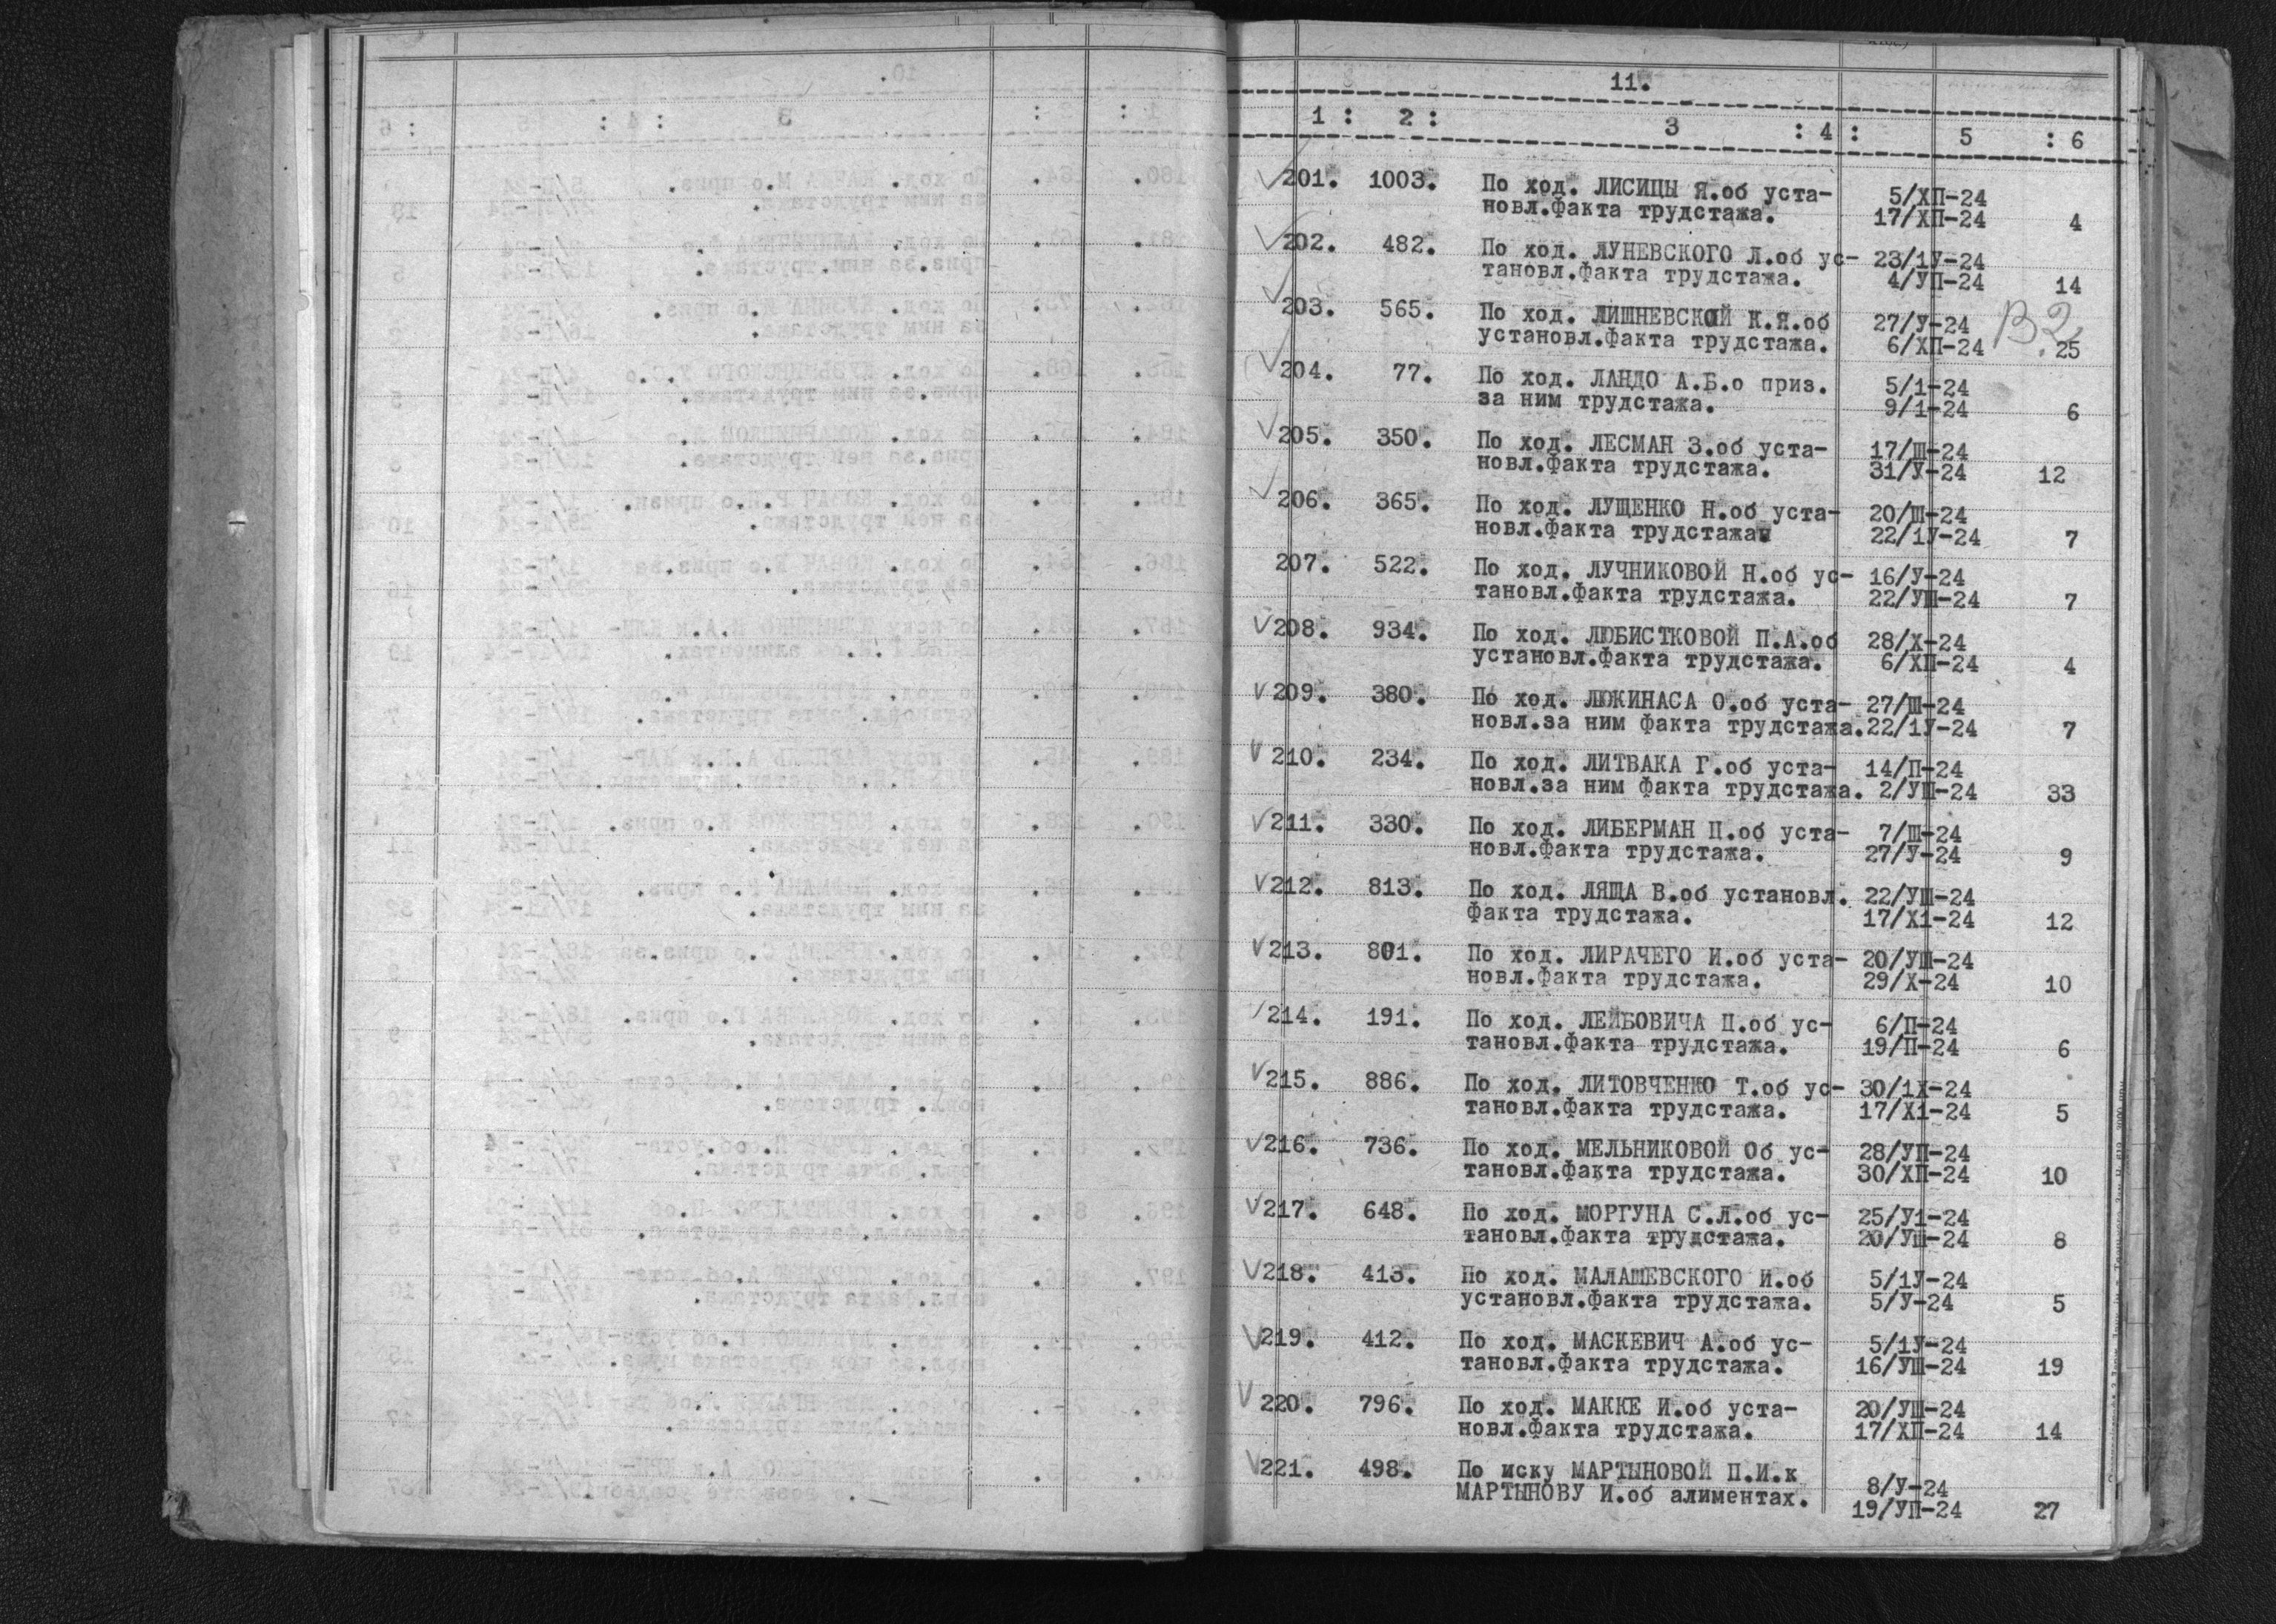 11.
1 : 2 : 3 : 4 : 5 : 6
201. 1003. По ход. ЛИСИЦЫ Я.об уста- 5/ХП-24
новл.факта трудстажа. 17/ХП-24 4
202. 482. По ход. ЛУНЕВСКОГО Л.об ус- 23/1У-24
тановл.факта трудстажа. 4/УП-24 14
203. 565. По ход. ЛИШНЕВСКОЙ К.Я.об 27/У-24 В2
установл.факта трудстажа. 6/ХП-24 25
204. 77. По ход. ЛАНДО А.Б.о приз. 5/1-24
за ним трудстажа. 9/1-24 6
205. 350. По ход. ЛЕСМАН З.об уста- 17/Ш-24
новл.факта трудстажа. 31/У-24 12
206. 365. По ход. ЛУЩЕНКО Н.об уста- 20/Ш-24
новл.факта трудстажа 22/1У-24 7
207. 522. По ход. ЛУЧНИКОВОЙ Н.об ус- 16/У-24
тановл.факта трудстажа. 22/УШ-24 7
208. 934. По ход. ЛЮБИСТКОВОЙ П.А.об 28/Х-24
установл.факта трудстажа. 6/ХП-24 4
209. 380. По ход. ЛЮЖИНАСА О.об уста- 27/Ш-24
новл.за ним факта трудстажа. 22/1У-24 7
210. 234. По ход. ЛИТВАКА Г.об уста- 14/П-24
новл.за ним факта трудстажа. 2/УШ-24 33
211. 330. По ход. ЛИБЕРМАН Ц.об уста- 7/Ш-24
новл.факта трудстажа. 27/У-24 9
212. 813. По ход. ЛЯЩА В.об установл. 22/УШ-24
факта трудстажа. 17/Х1-24 12
213. 801. По ход. ЛИРАЧЕГО И.об уста- 20/УШ-24
новл.факта трудстажа. 29/Х-24 10
214. 191. По ход. ЛЕЙБОВИЧА Ц.об ус- 6/П-24
тановл.факта трудстажа. 19/П-24 6
215. 886. По ход. ЛИТОВЧЕНКО Т.об ус- 30/1Х-24
тановл.факта трудстажа. 17/Х1-24 5
216. 736. По ход. МЕЛЬНИКОВОЙ Об ус- 28/УП-24
тановл.факта трудстажа. 30/ХП-24 10
217. 648. По ход. МОРГУНА С.Л.об ус- 25/У1-24
тановл.факта трудстажа. 20/УШ-24 8
218. 413. По ход. МАЛАШЕВСКОГО И.об 5/1У-24
установл.факта трудстажа. 5/У-24 5
219. 412. По ход. МАСКЕВИЧ А.об ус- 5/1У-24
тановл.факта трудстажа. 16/УШ-24 19
220. 796. По ход. МАККЕ И.об уста- 20/УШ-24
новл.факта трудстажа. 17/ХП-24 14
221. 498. По иску МАРТЫНОВОЙ П.И.к 8/У-24
МАРТЫНОВУ И.об алиментах. 19/УП-24 27